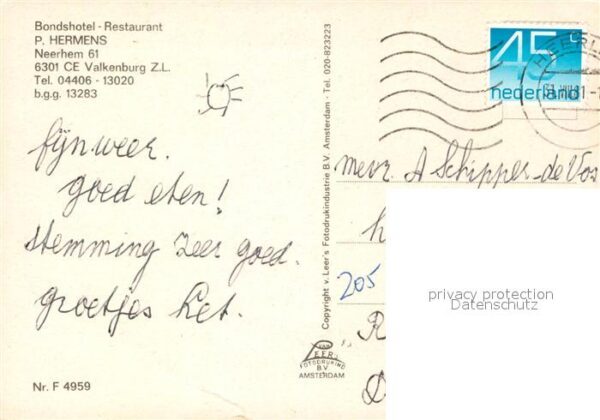 Bondshotel - Restaurant
P. HERMENS
Neerhem 61
6301 CE Valkenburg Z.L.
Tel. 04406 - 13020
b.g.g. 13283
fijn weer.
goed eten!
stemming zeer goed.
groetjes Ket.
Nr. F 4959
Copyright v. Leer's Fotodrukindustrie B.V. Amsterdam - Tel. 020-823223
45c
nederland
HEERL
mevr. A Schipper-de Vos
h
205
"R
VAN
LEER'S
FOTODRUKIND
B.V.
AMSTERDAM
privacy protection
Datenschutz